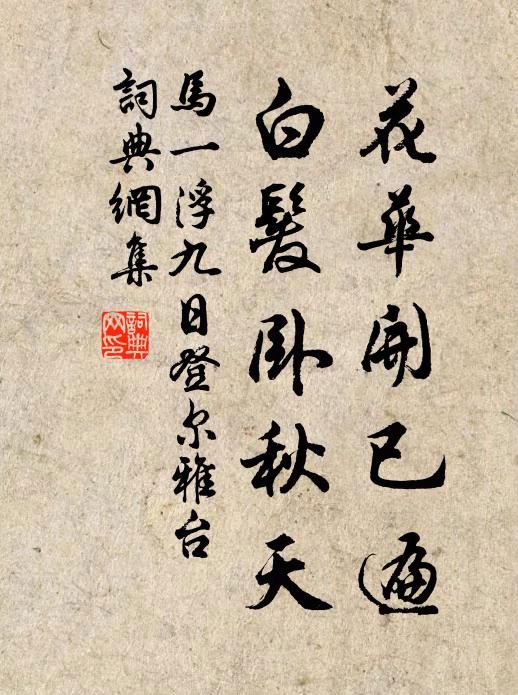 花華開已遍
白髮卧秋天
馬一浮九日登尔雅台
詞典網集
詞典网印